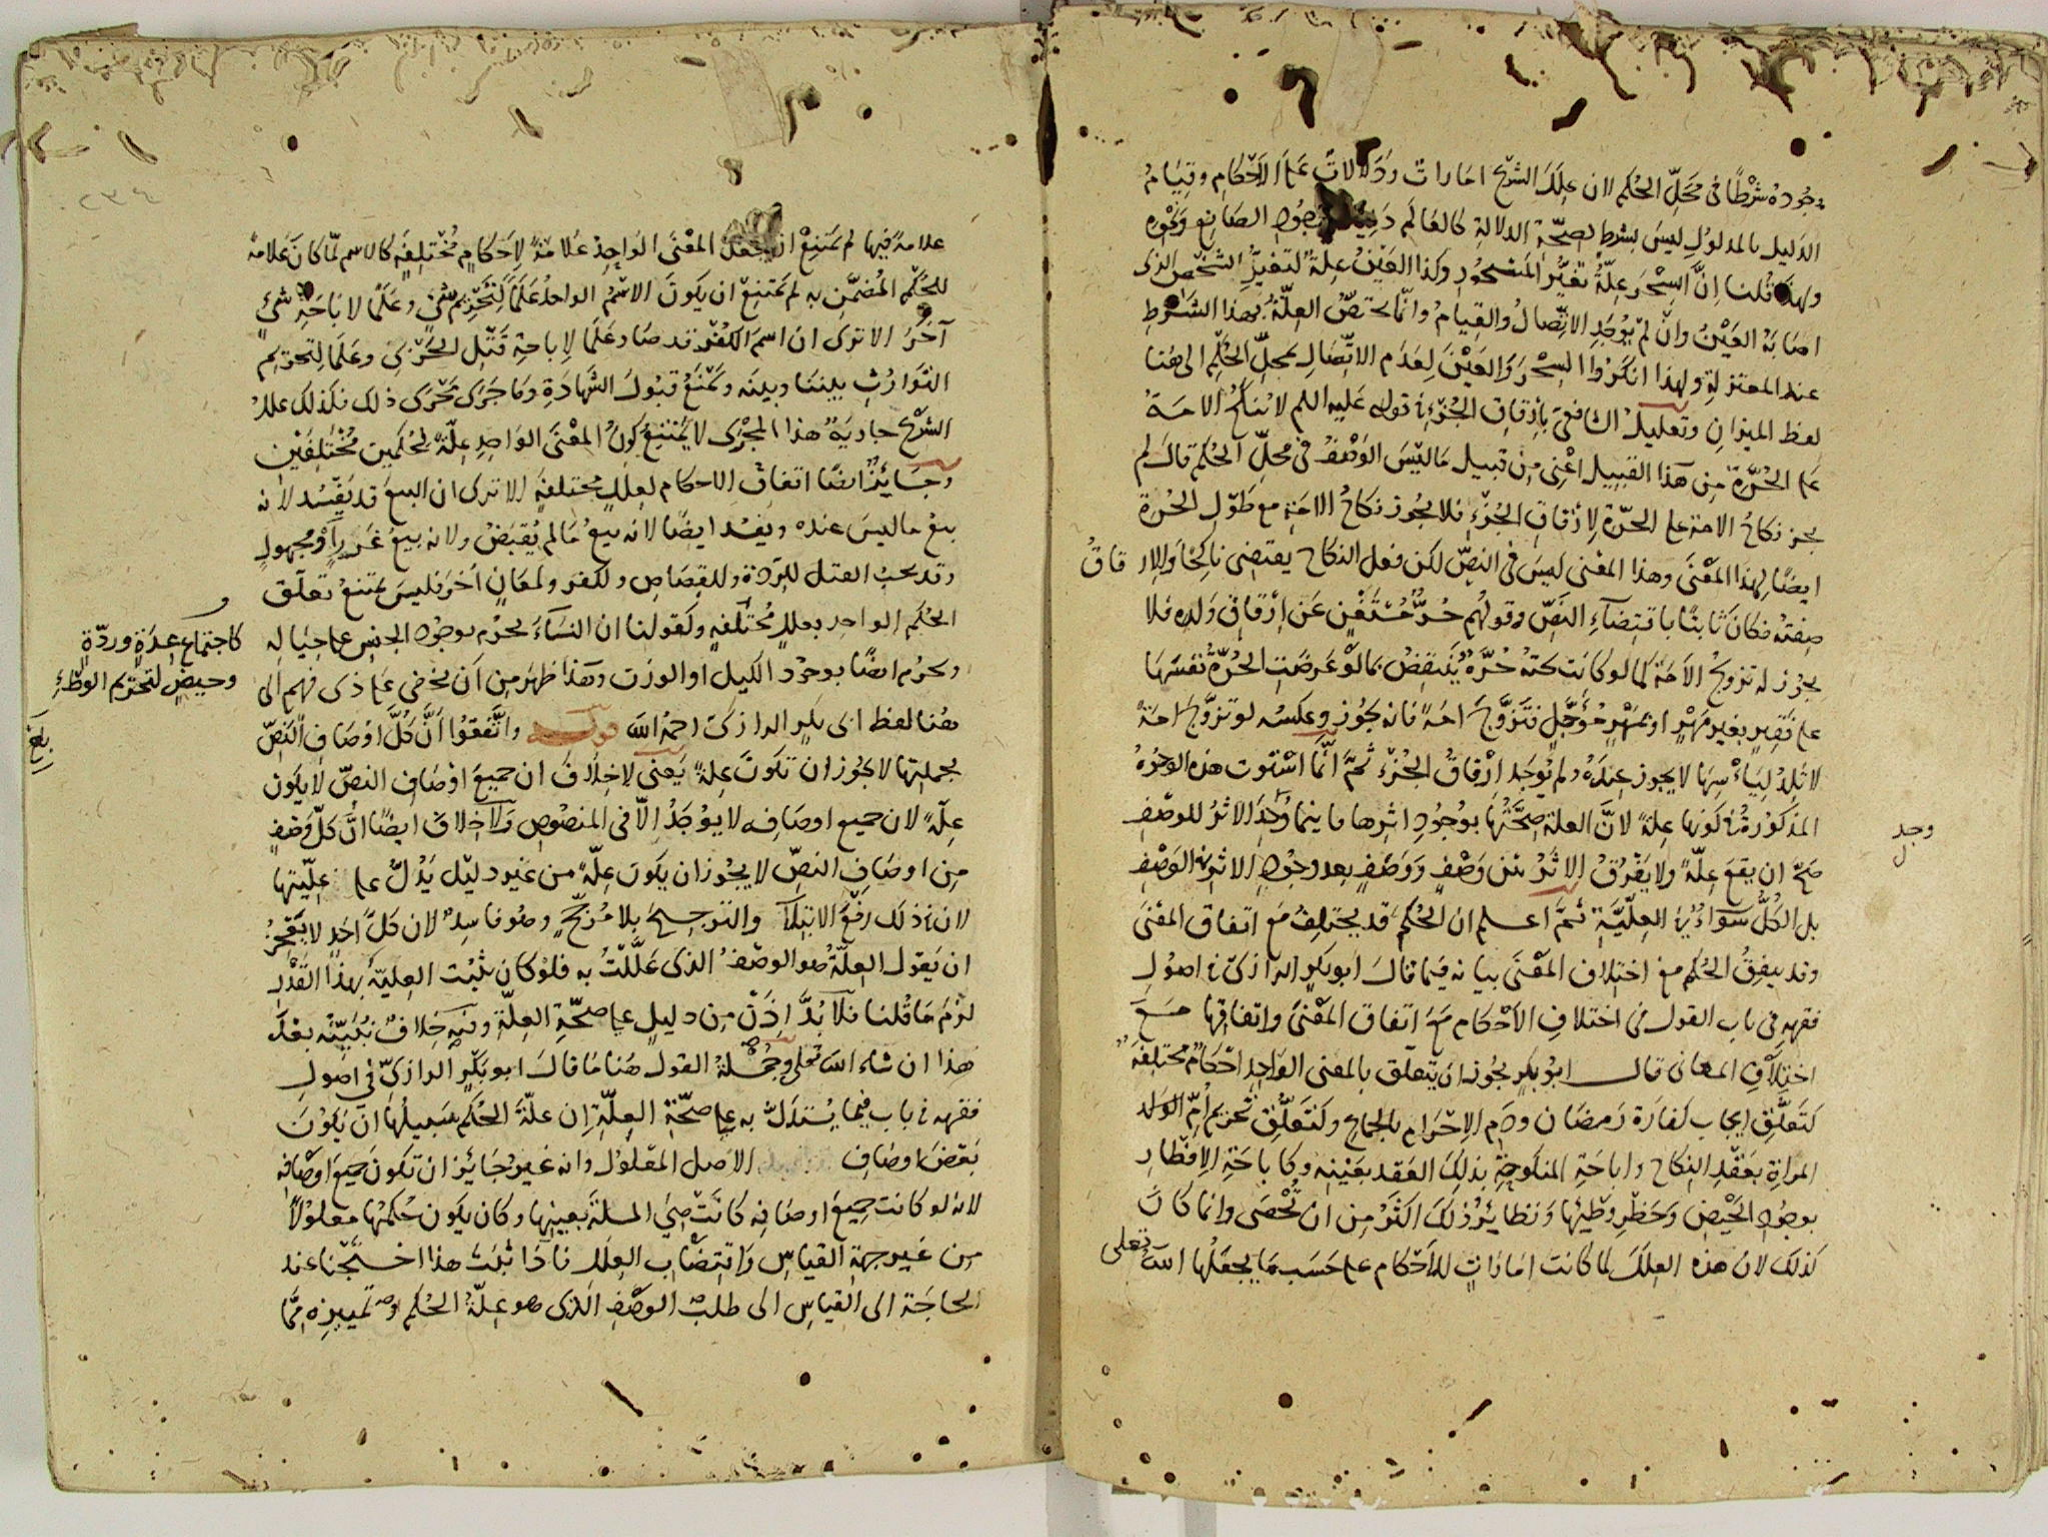 وجوده شرطا في محل الحكم لان علل الشرع امارات ودلالات على الاحكام وقيام
الدليل بالمدلول ليس بشرط لصحة الدلالة كالعالم دليل وجود الصانع ونحوه
ولهذا قلنا ان السحر علة تغير المسحور وكذا العين علة لتغير الشخص الذي
اصابه العين وان لم يوجد الاتصال والقيام وانما يختص العلة بهذا الشرط
عند المعتزلة ولهذا انكروا السحر والعين لعدم الاتصال بمحل الحكم الى هنا
لفظ الميزان وتعليل الشافعي بارقاق الجزء في قوله عليه السلم لا تنكح الامة
على الحرة من هذا القبيل اعني من قبيل ما ليس الوصف في محل الحكم قال لم
يجز نكاح الامة على الحرة لارقاق الجزء فلا يجوز نكاح الامة مع طول الحرة
ايضا لهذا المعنى وهذا المعنى ليس في النص لكن فعل النكاح يقتضي ناكحا والارقاق
صفته فكان ثابتا باقتضاء النص وقولهم حر مستغن عن ارقاق ولده فلا
يجوز له تزويج الامة كما لو كانت تحته حرة ينتقض بما لو عرضت الحرة نفسها
على فقير بغير مهر او بمهر مؤجل فتزوج امة فانه يجوز وعكسه لو تزوج امة
لا تلد لياسها لا يجوز عنده ولم يوجد ارقاق الجزء ثم انما استوت هذه الوجوه
المذكورة في كونها علة لان العلة صحتها بوجود اثرها فاينما وجد الاثر للوصف
وجد
صح ان يقع علة ولا يفرق الاثر بين وصف ووصف بعد وجود الاثر في الوصف
بل الكل سواء في العلية ثم اعلم ان الحكم قد يختلف مع اتفاق المعنى
وقد يتفق الحكم مع اختلاف المعنى بيانه فيما قال ابو بكر الرازي في اصول
فقهه في باب القول في اختلاف الاحكام مع اتفاق المعنى واتفاقها مع
اختلاف المعاني قال ابو بكر يجوز ان يتعلق بالمعنى الواحد احكام مختلفة
كتعلق ايجاب كفارة رمضان ودم الاحرام بالجماع وكتعلق تحريم ام الولد
المراة بعقد النكاح واباحة المنكوحة بذلك العقد بعينه وكاباحة الافطار
بوجود الحيض وحظر وطئها ونظائر ذلك اكثر من ان تحصى وانما كان
كذلك لان هذه العلل لما كانت امارات للاحكام على حسب ما يجعلها الله تعلى
علامة فيها لم يمتنع ان يجعل المعنى الواحد علامة لاحكام مختلفة كالاسم لما كان علامة
للحكم المضمن به لم يمتنع ان يكون الاسم الواحد علما لتحريم شئ وعلما لاباحة شئ
آخر الا ترى ان اسم الكفر قد صار علما لاباحة قتل الحربي وعلما لتحريم
التوارث بيننا وبينه ويمنع قبول الشهادة وما جرى مجرى ذلك فكذلك علل
الشرع جارية هذا المجرى لا يمتنع كون المعنى الواحد علة لحكمين مختلفين
وجائز ايضا اتفاق الاحكام لعلل مختلفة الا ترى ان البيع قد يفسد لانه
بيع ما ليس عنده ويفسد ايضا لانه بيع ما لم يقبض ولانه بيع غرر او مجهول
وقد يجب القتل للردة وللقصاص وللكفر ولمعان اخر فليس يمتنع تعلق
الحكم الواحد بعلل مختلفة وكقولنا ان النساء يحرم بوجود الجنس على حياله
كاجتماع عدة وردة
وحيض لتحريم الوطء
ويحرم ايضا بوجود الكيل او الوزن وهذا اظهر من ان يخفى على ذي فهم الى
هنا لفظ ابي بكر الرازي رحمه الله قوله واتفقوا ان كل اوصاف النص
بلغ
بجملتها لا يجوز ان تكون علة يعني لا خلاف ان جميع اوصاف النص لا يكون
علة لان جميع اوصافه لا يوجد الا في المنصوص ولا خلاف ايضا ان كل وصف
من اوصاف النص لا يجوز ان يكون علة من غير دليل يدل على عليتها
لان في ذلك رفع الابتلاء والترجيح بلا مرجح وهو فاسد لان كل احد لا يعجز
ان يقول العلة هو الوصف الذي عللت به فلو كان تثبت العلية بهذا القدر
لزم ما قلنا فلا بد اذن من دليل على صحة العلة وفيه خلاف نبينه بعد
هذا ان شاء الله تعلى وجملة القول هنا ما قال ابو بكر الرازي في اصول
فقهه في باب فيما يستدل به على صحة العلة ان علة الحكم سبيلها ان يكون
بعض اوصاف الاصل المعلول وانه غير جائز ان تكون جميع اوصافه
لانه لو كانت جميع اوصافه كانت هي المسلة بعينها وكان يكون حكمها معلولا
من غير جهة القياس واقتضاب العلل فاذا ثبت هذا احتجنا عند
الحاجة الى القياس الى طلب الوصف الذي هو علة الحكم وتمييزه مما